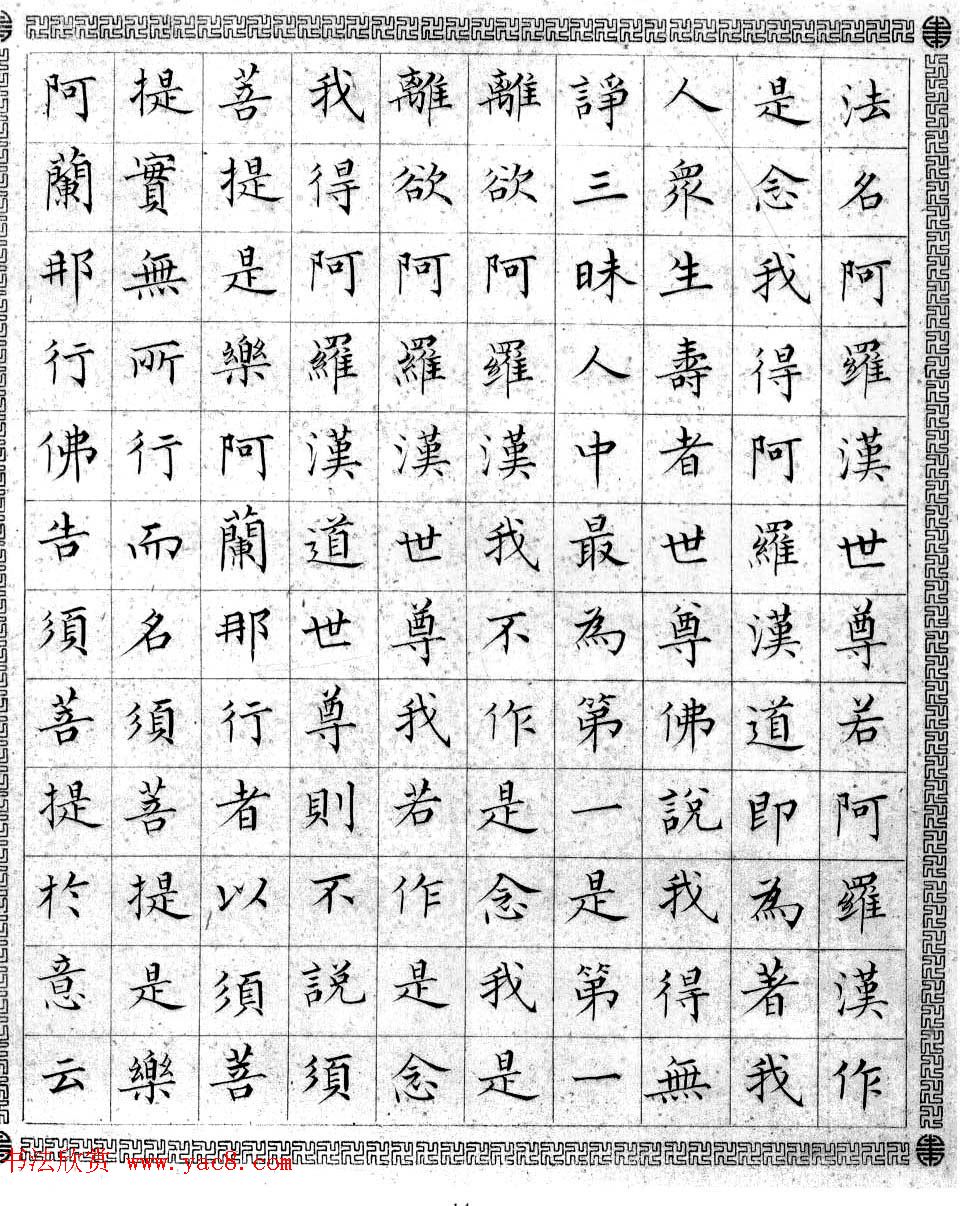 法名阿羅漢世尊若阿羅漢作
是念我得阿羅漢道即為著我
人衆生壽者世尊佛說我得無
諍三昧人中最為第一是第一
離欲阿羅漢我不作是念我是
離欲阿羅漢世尊我若作是念
我得阿羅漢道世尊則不說須
菩提是樂阿蘭那行者以須菩
提實無所行而名須菩提是樂
阿蘭那行佛告須菩提於意云
书法欣赏 www.yac8.com